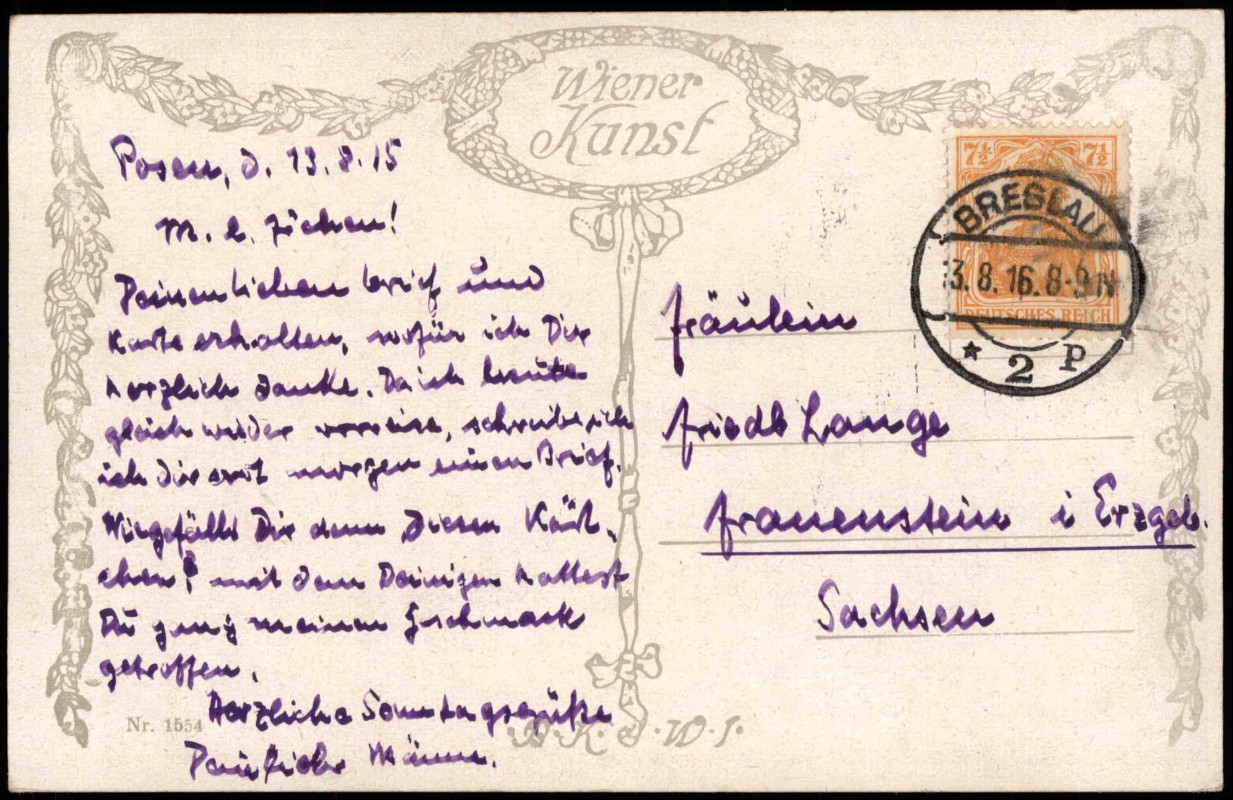 Wiener
Kunst
Posen, d. 13.8.15
M. l.
Deinen lieben Brief und
Karte erhalten, wofür ich Dir
herzlich danke. Da ich heute
gleich wieder verreise, schreibe ich
ich Dir erst morgen einen Brief.
Wie gefällt Dir denn dieses Kärt-
chen? mit dem Deinigen hattest
Du ganz meinen Geschmack
getroffen.
Herzliche Sonntagsgrüße
Dein Männe.
Nr. 1554
B.K.W.I.
7½ 7½
DEUTSCHES REICH
BRESLAU
13.8.16.8-9N
* 2 P
Fräulein
Lange
Frauenstein i Erzgeb.
Sachsen